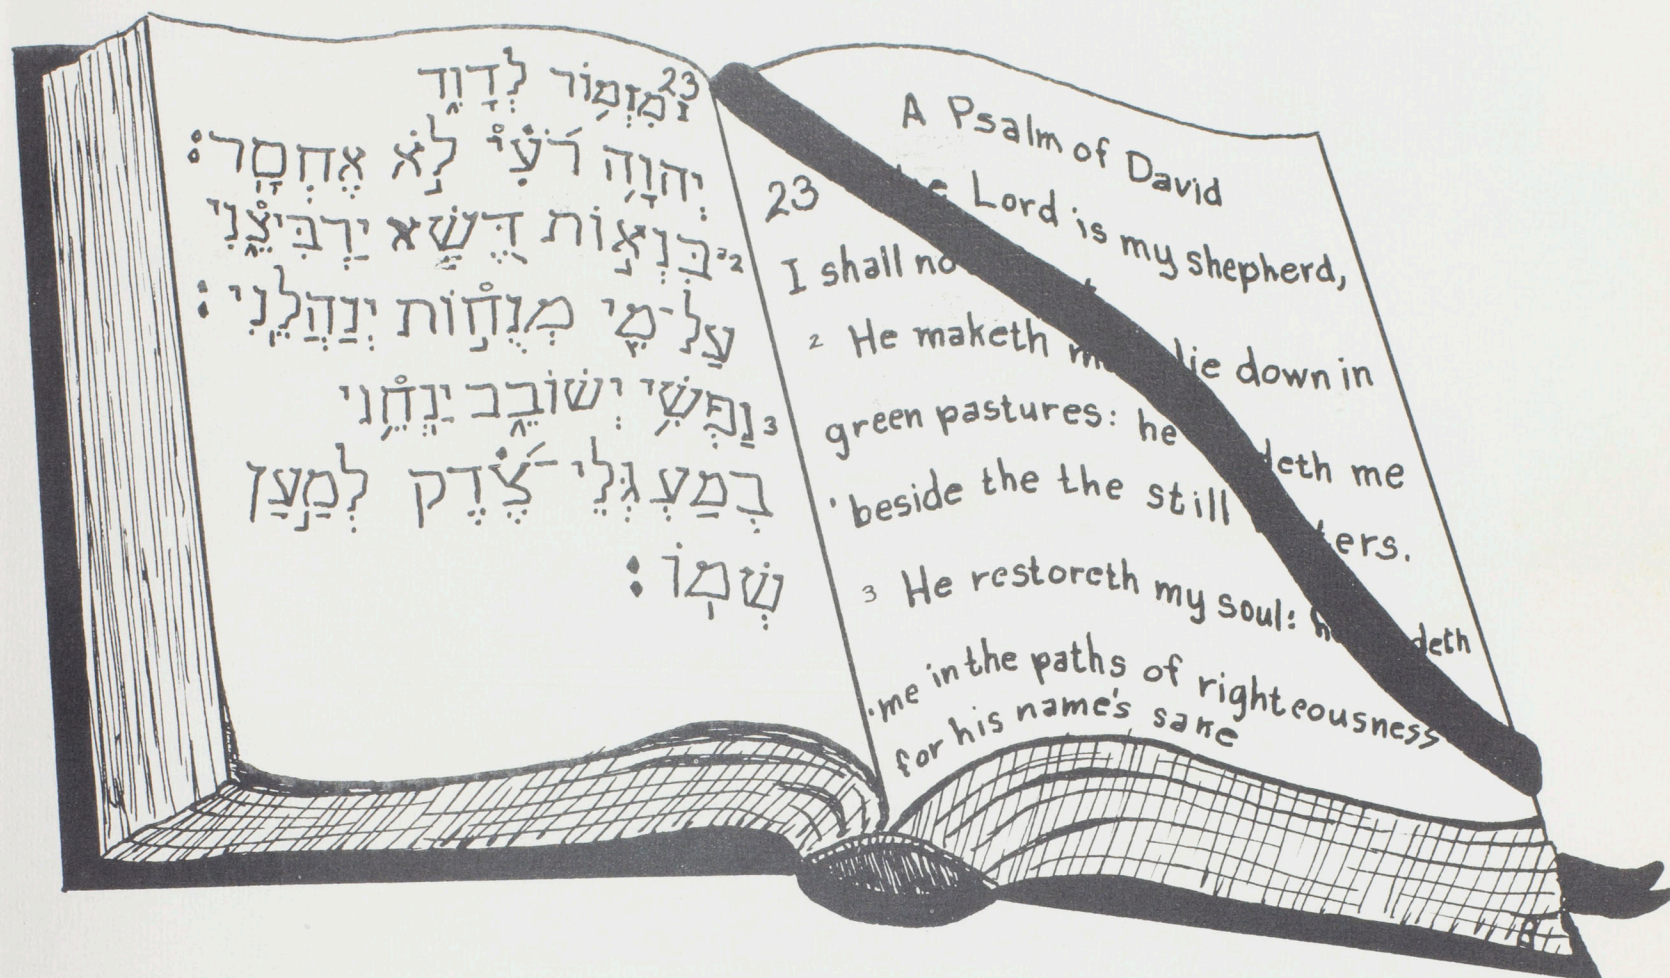 23 מִזְמוֹר לְדָוִד
יְהוָה רֹעִי לֹא אֶחְסָר׃
2 בִּנְאוֹת דֶּשֶׁא יַרְבִּיצֵנִי
עַל־מֵי מְנֻחוֹת יְנַהֲלֵנִי׃
3 נַפְשִׁי יְשׁוֹבֵב יַנְחֵנִי
בְמַעְגְּלֵי־צֶדֶק לְמַעַן
שְׁמוֹ׃
A Psalm of David
23 Lord is my shepherd,
I shall
2 He maketh lie down in
green pastures: he me
beside the the still
3 He restoreth my soul:
me in the paths of righteousness
for his name's sake